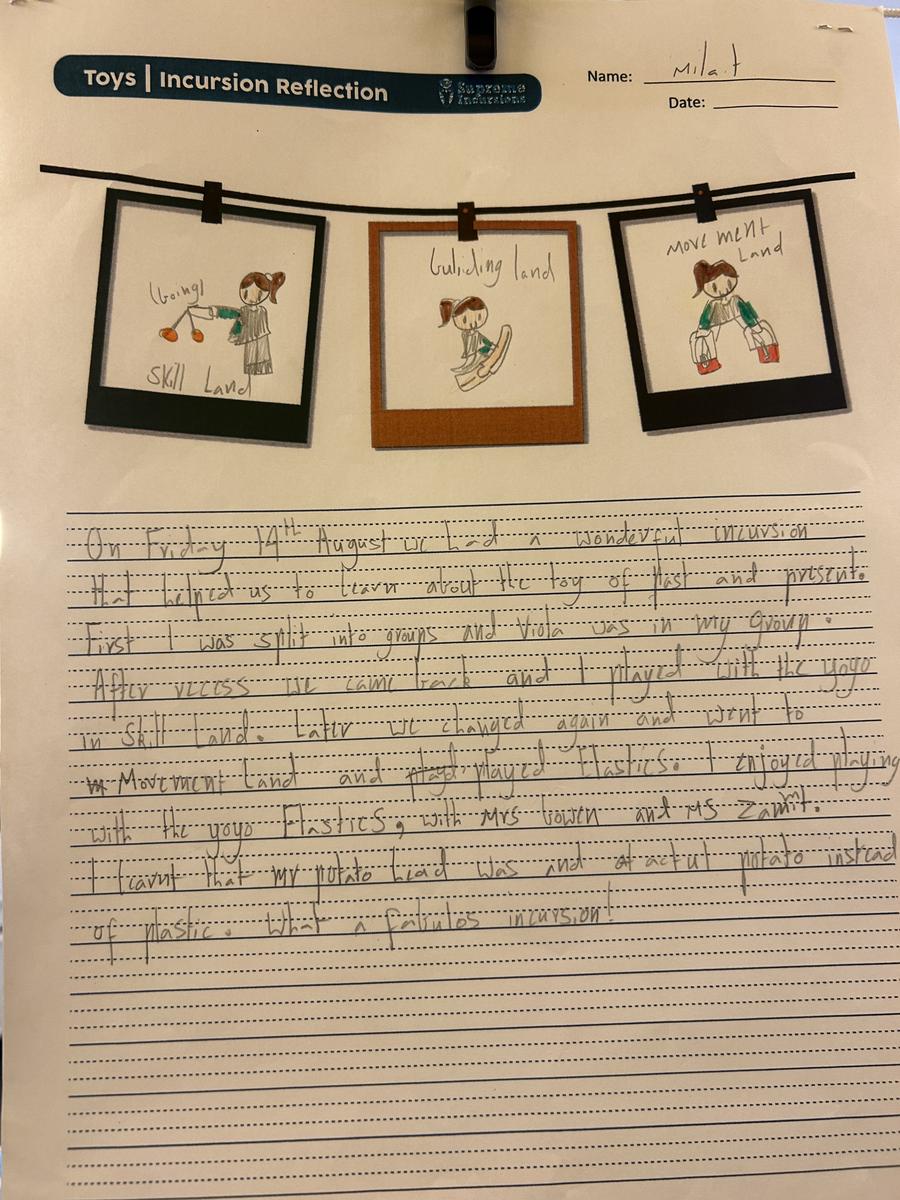 Toys | Incursion Reflection
Supreme Incursions
Name: Mila.t
Date:
(boing)
Skill Land
buliding land
Movement Land
On Friday 14th August we had a wonderful incursion
that helped us to learn about the toy of Past and present.
First I was split into groups and Viola was in my group.
After recess we came back and I played with the yoyo
in Skill Land. Later we changed again and went to
in Movement Land and playd played Elastics. I enjoyed playing
with the yoyo Elastics, with Mrs bowen and MS Zammit.
I learnt that mr potato head was and at actul potato instead
of plastic. What a fabulos incursion!